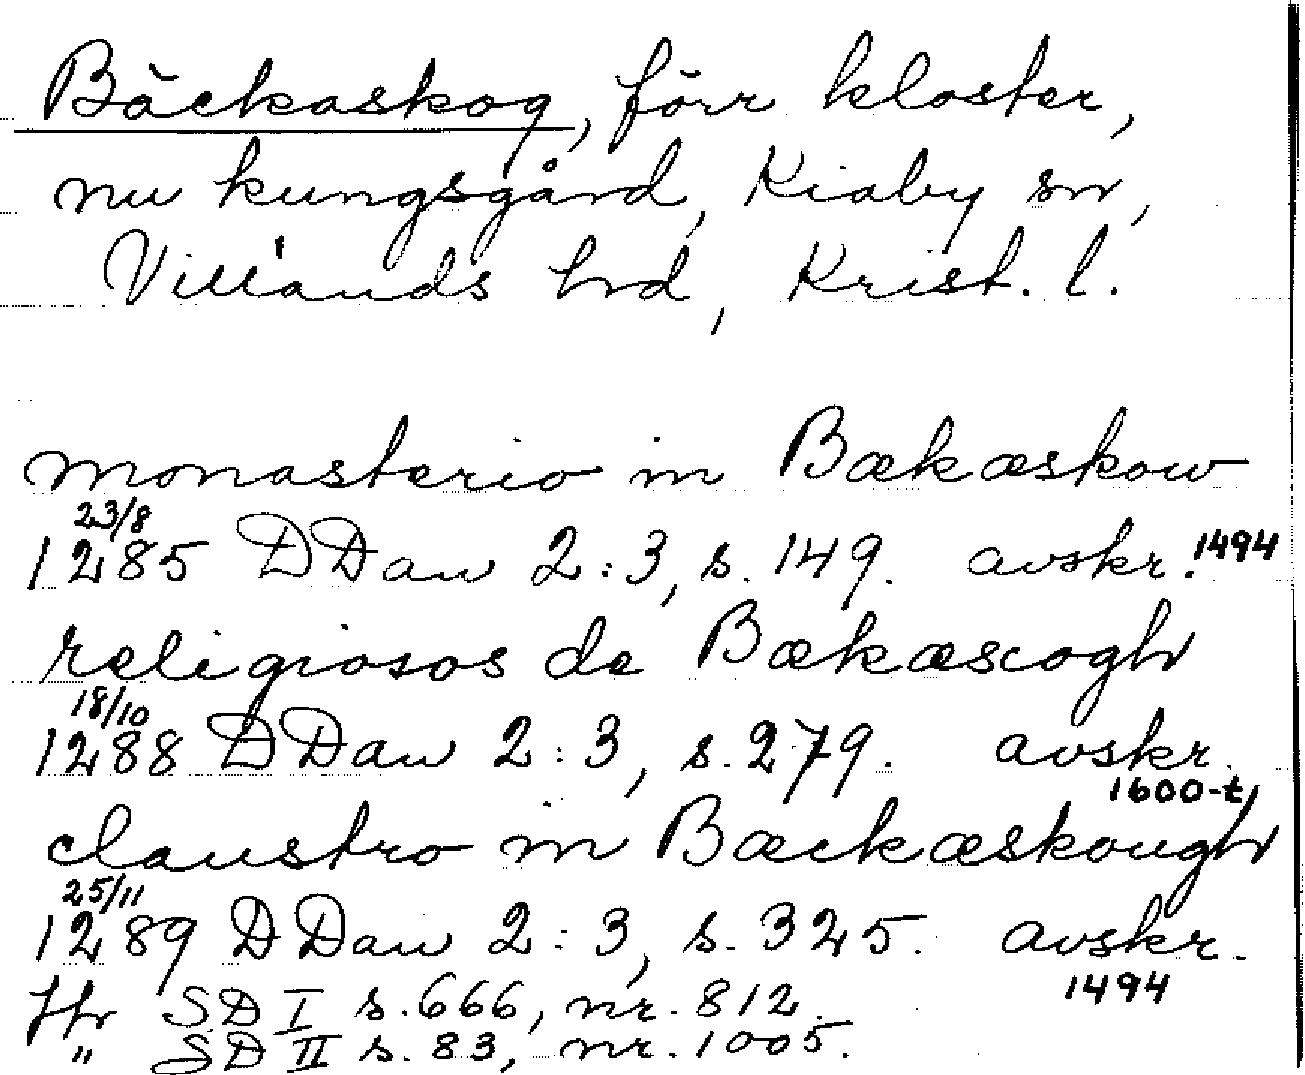 Bäckaskog, förr kloster,
nu kungsgård, Kiaby sn,
Villands hrd, Krist. l.
monasterio in Bækæskow
23/8
1285 DDan 2:3, s. 149. avskr. 1494
religiosos de Bækæscogh
18/10
1288 DDan 2:3, s. 279. avskr.
1600-t
claustro in Bæckæskough
25/11
1289 DDan 2:3, s. 325. avskr.
1494
Jfr SD I s. 666, nr. 812.
" SD II s. 83, nr. 1005.